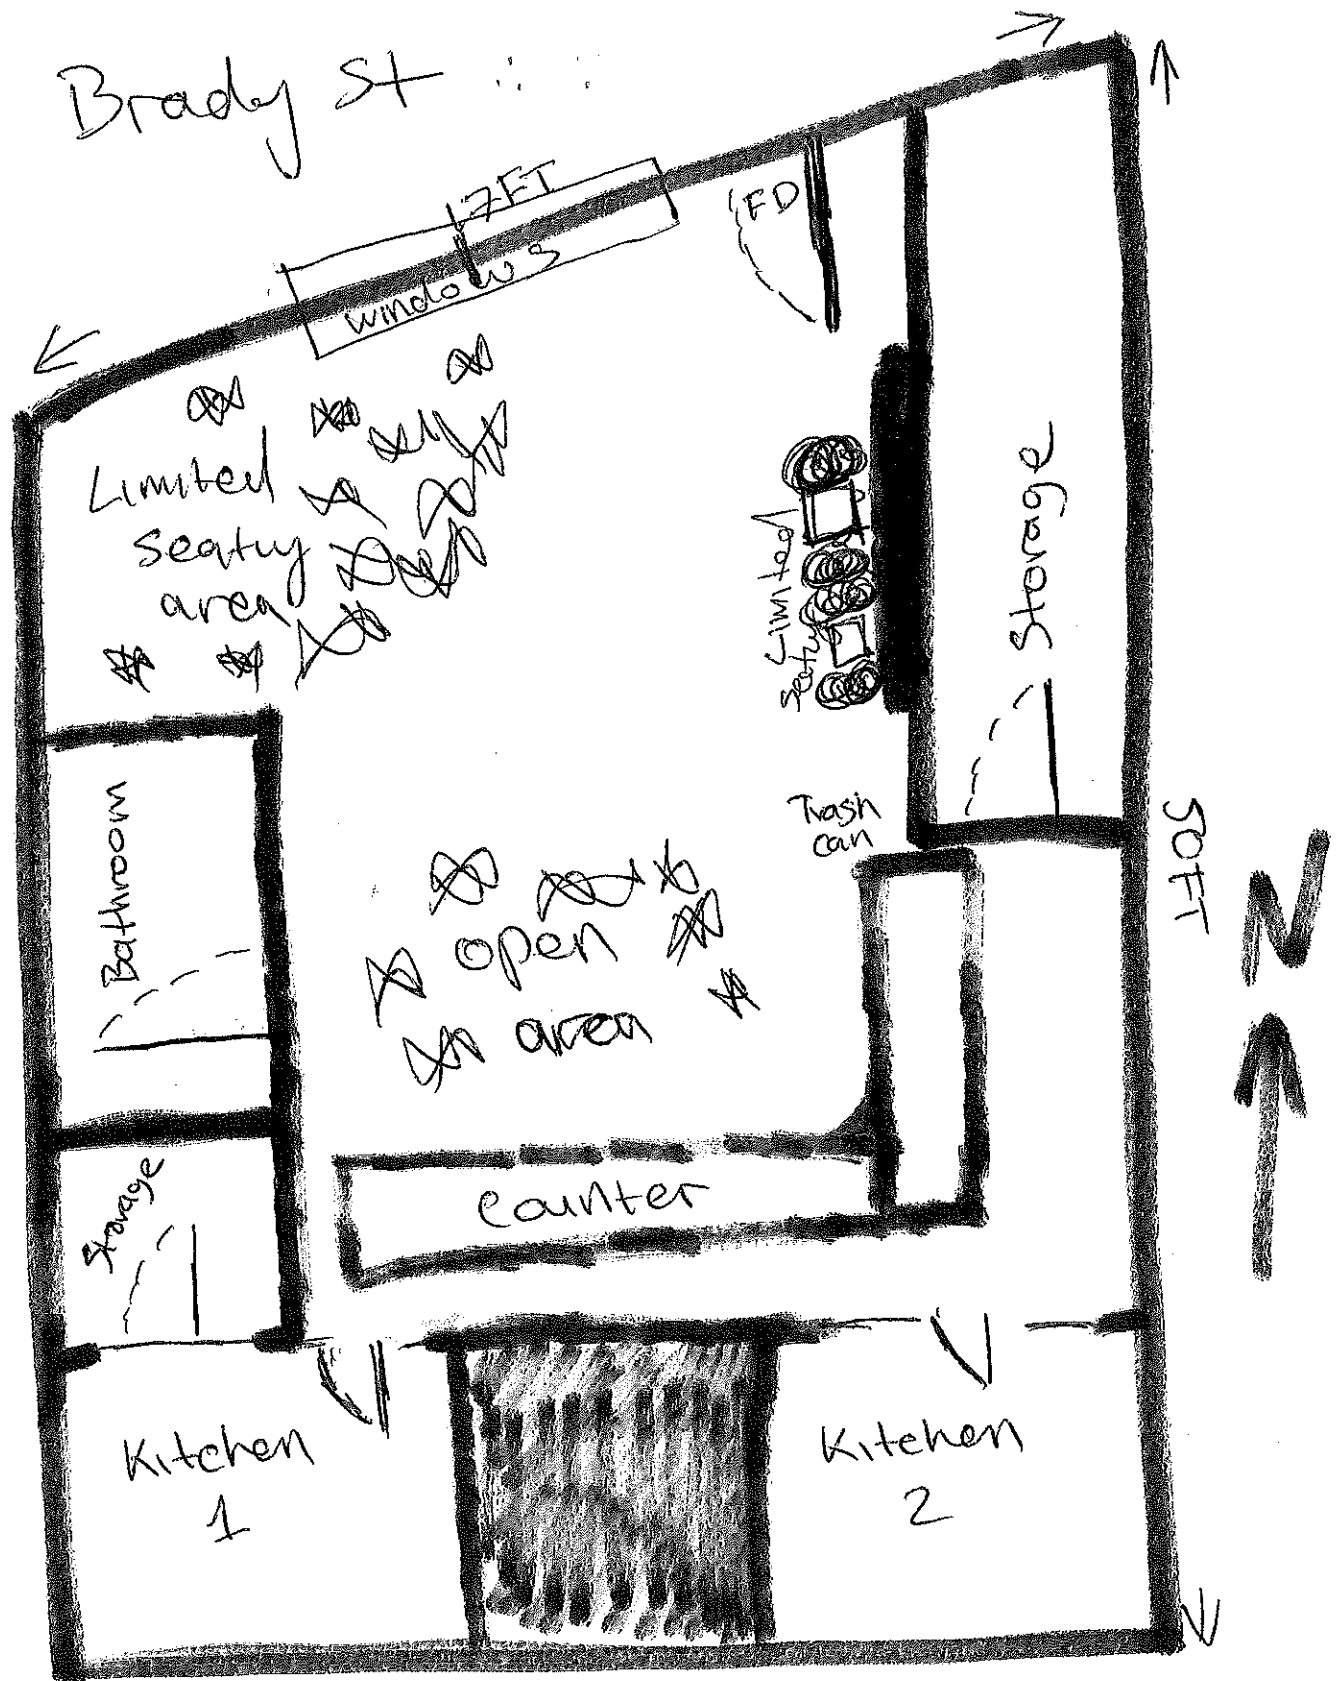 Brady St
17FT
windows
FD
Limited
seating
area
Limited
Seating
Storage
Trash
can
Bathroom
open
area
50FT
N
Storage
Counter
Kitchen
1
Kitchen
2